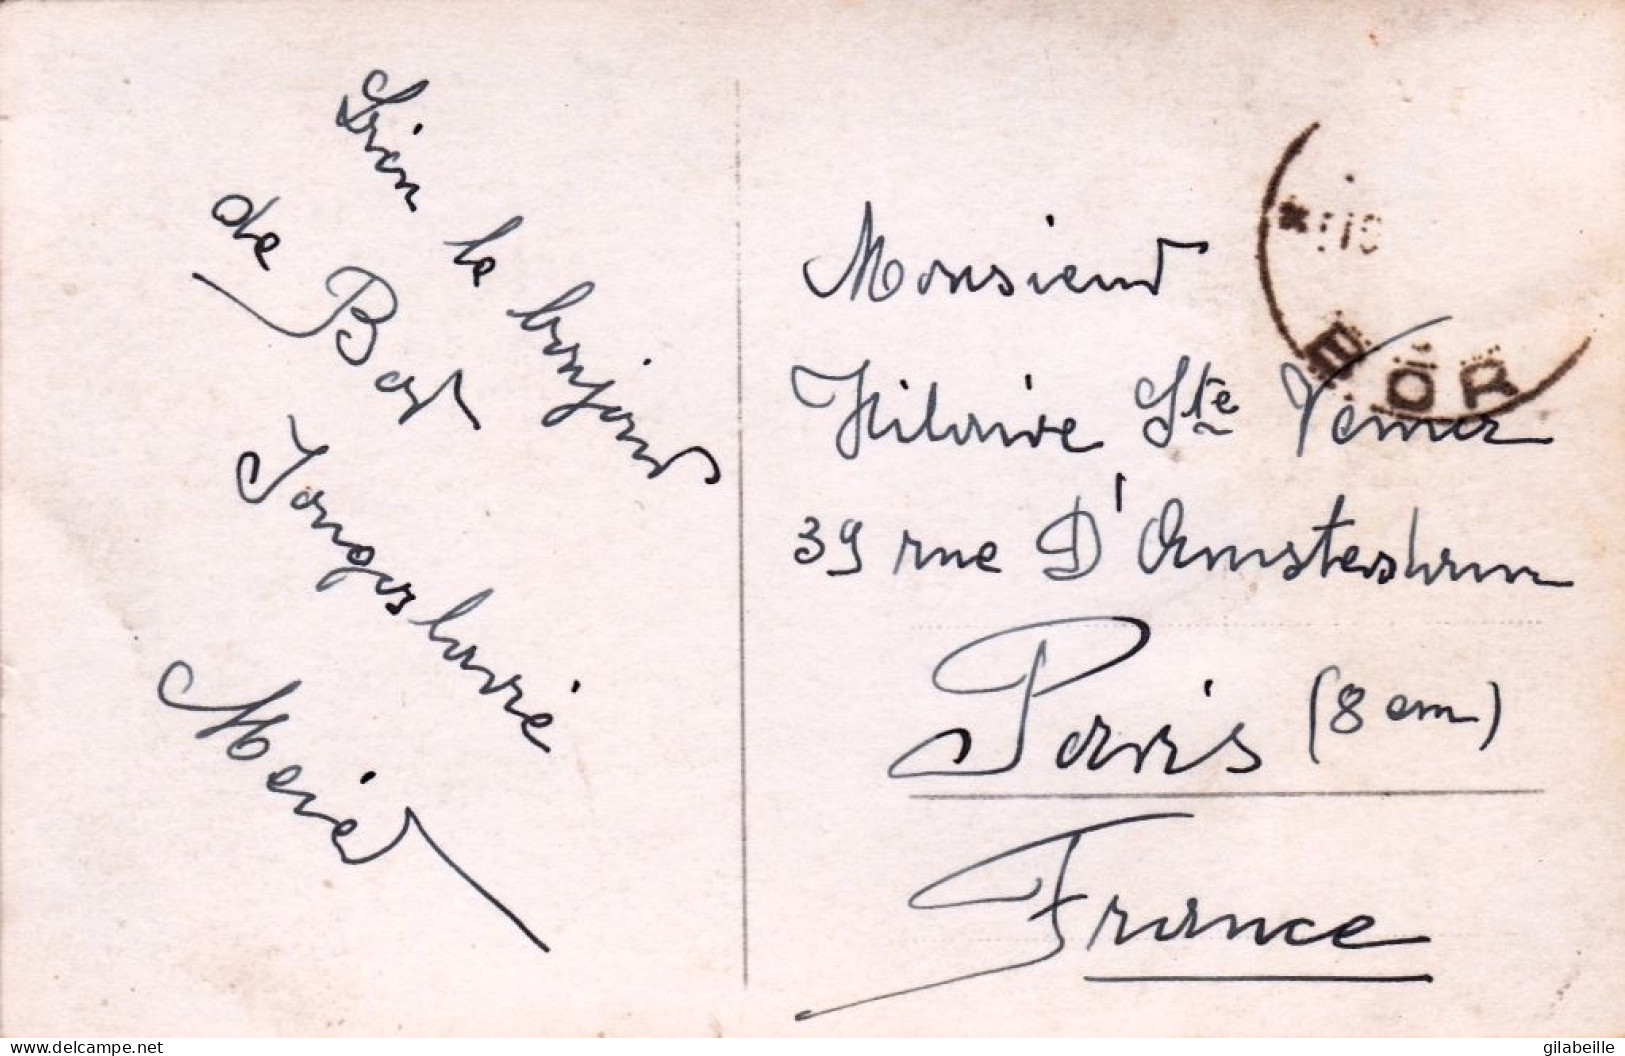 Bien le bonjour
de Bor
Yougoslavie
Monsieur
Hilaire Ste
39 rue D'Amsterdam
Paris (8em)
France
BOR
Delcampe.net
gilabeille